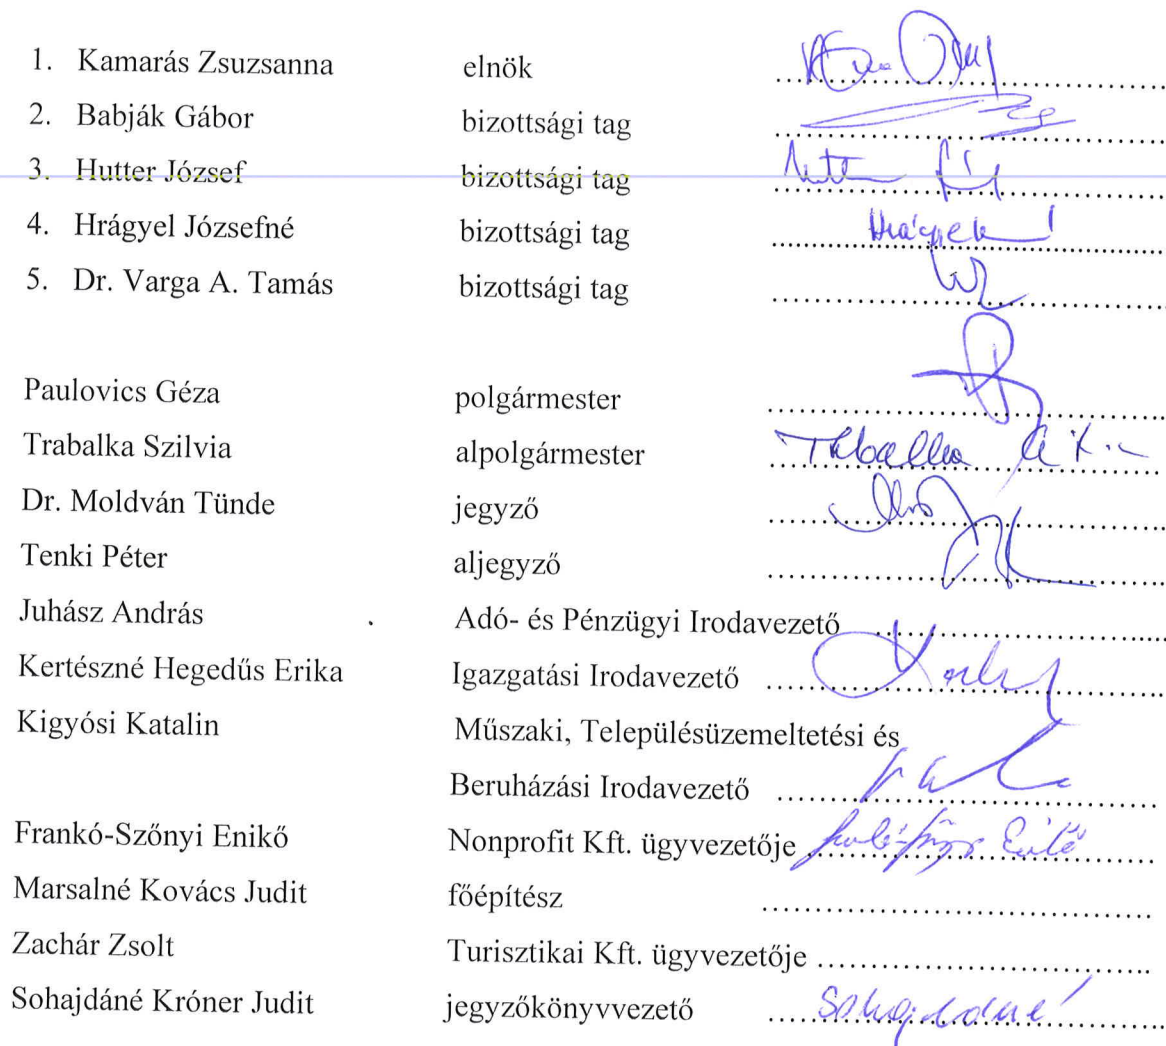 1. Kamarás Zsuzsanna elnök
2. Babják Gábor bizottsági tag
3. Hutter József bizottsági tag
4. Hrágyel Józsefné bizottsági tag Hrágyel
5. Dr. Varga A. Tamás bizottsági tag
Paulovics Géza polgármester
Trabalka Szilvia alpolgármester
Dr. Moldván Tünde jegyző
Tenki Péter aljegyző
Juhász András Adó- és Pénzügyi Irodavezető
Kertészné Hegedűs Erika Igazgatási Irodavezető
Kigyósi Katalin Műszaki, Településüzemeltetési és
Beruházási Irodavezető
Frankó-Szőnyi Enikő Nonprofit Kft. ügyvezetője
Marsalné Kovács Judit főépítész
Zachár Zsolt Turisztikai Kft. ügyvezetője
Sohajdáné Króner Judit jegyzőkönyvvezető Sohajdáné